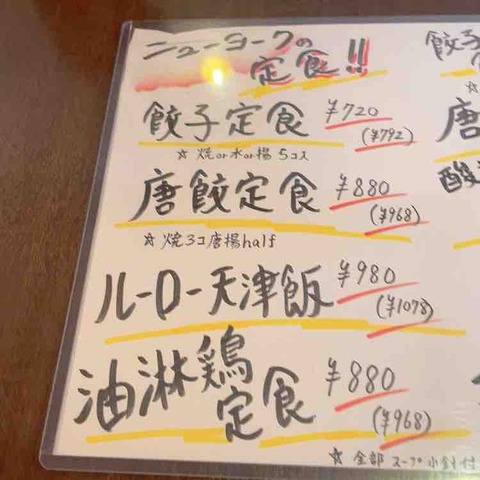 ニューヨークの
定食!!
餃子定食 ¥720
(¥792)
☆ 焼or水or揚 5コ
唐餃定食 ¥880
(¥968)
☆ 焼3コ唐揚half
ルーロー天津飯 ¥980
(¥1078)
油淋鶏
定食 ¥880
(¥968)
☆ 全部 スープ小針付
餃子
唐
酸